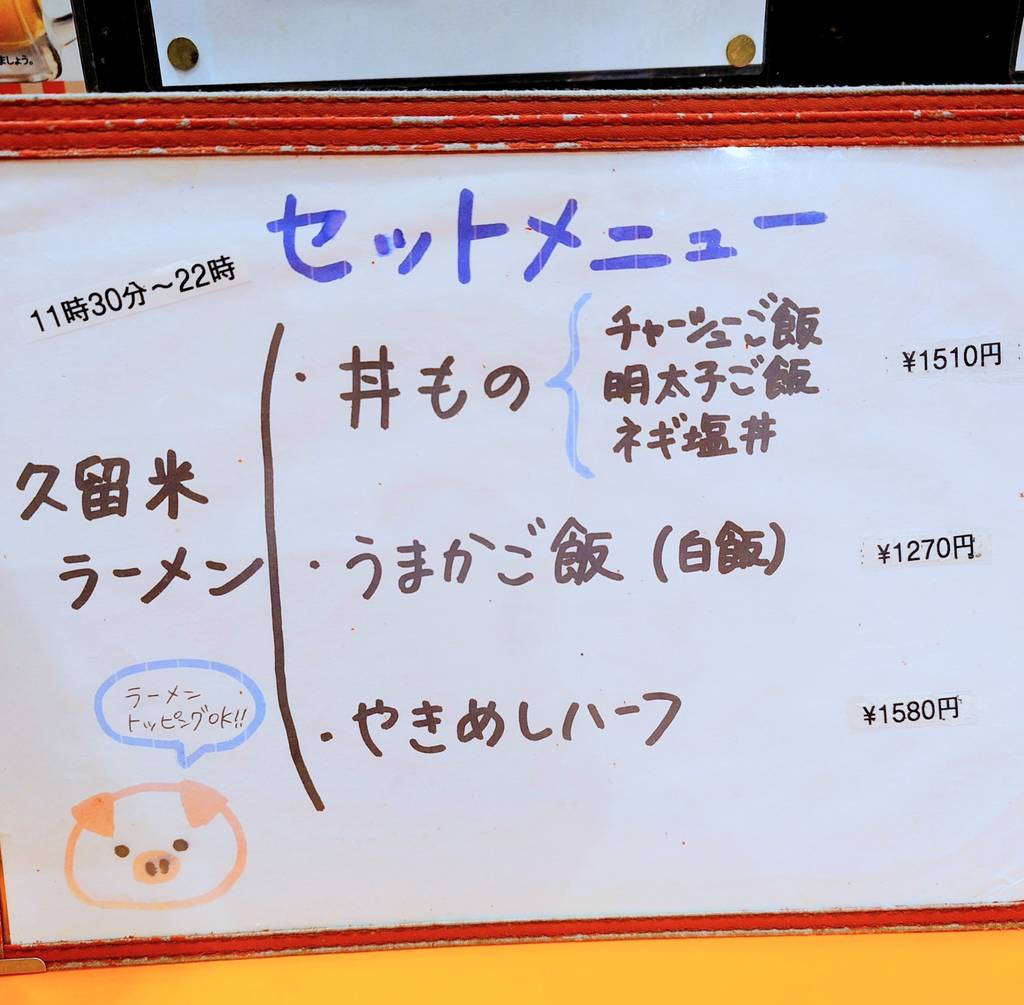 ましょう。
セットメニュー
11時30分～22時
久留米
ラーメン
・丼もの
チャーシューご飯
明太子ご飯
ネギ塩丼
¥1510円
・うまかご飯(白飯)
¥1270円
・やきめしハーフ
¥1580円
ラーメン
トッピングOK!!